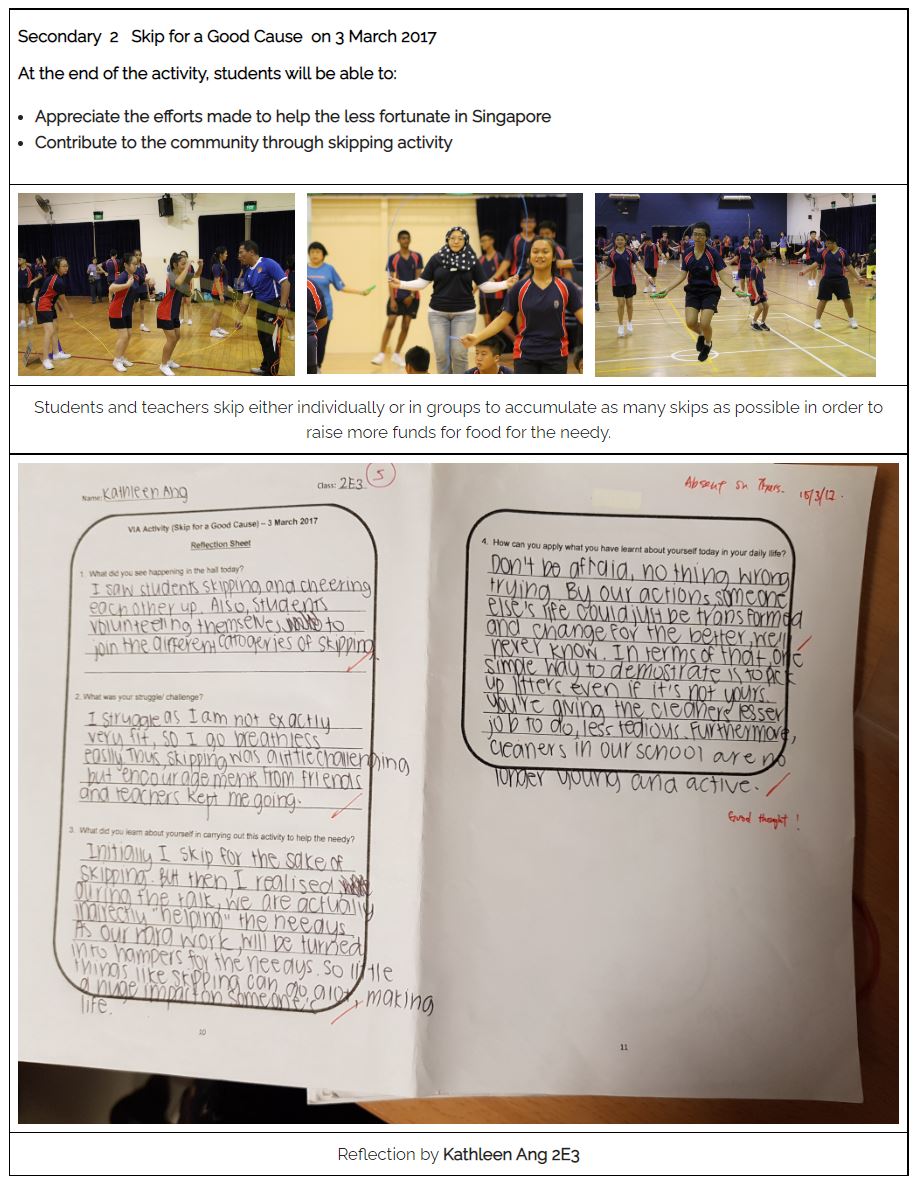 Secondary 2 Skip for a Good Cause on 3 March 2017
At the end of the activity, students will be able to:
• Appreciate the efforts made to help the less fortunate in Singapore
• Contribute to the community through skipping activity
Students and teachers skip either individually or in groups to accumulate as many skips as possible in order to
raise more funds for food for the needy.
Name: Kathleen Ang
Class: 2E3
5
VIA Activity (Skip for a Good Cause) – 3 March 2017
Reflection Sheet
1. What did you see happening in the hall today?
I saw students skipping and cheering
each other up. Also, students
volunteering themselves to
join the different catogeries of skipping
2. What was your struggle/ challenge?
I struggle as I am not exactly
very fit, so I go breathless
easily. Thus, skipping was a little challenging
but encouragements from friends
and teachers kept me going.
3. What did you learn about yourself in carrying out this activity to help the needy?
Initially I skip for the sake of
skipping. But then, I realised
during the talk, we are actually
indirectly "helping" the needys
As our hard work, will be turned
into hampers for the needys. So little
things like skipping can go a lot, making
a huge impact on someone's
life.
10
Absent on Thurs. 15/3/17.
4. How can you apply what you have learnt about yourself today in your daily life?
Don't be afraid, nothing wrong
trying. By our actions, someone
else's life could just be transformed
and change for the better, we'll
never know. In terms of that, one
simple way to demostrate is to pick
up litters even if it's not yours.
You're giving the cleaners lesser
job to do, less tedious. Furthermore,
cleaners in our school are no
longer young and active.
Good thought!
11
Reflection by Kathleen Ang 2E3